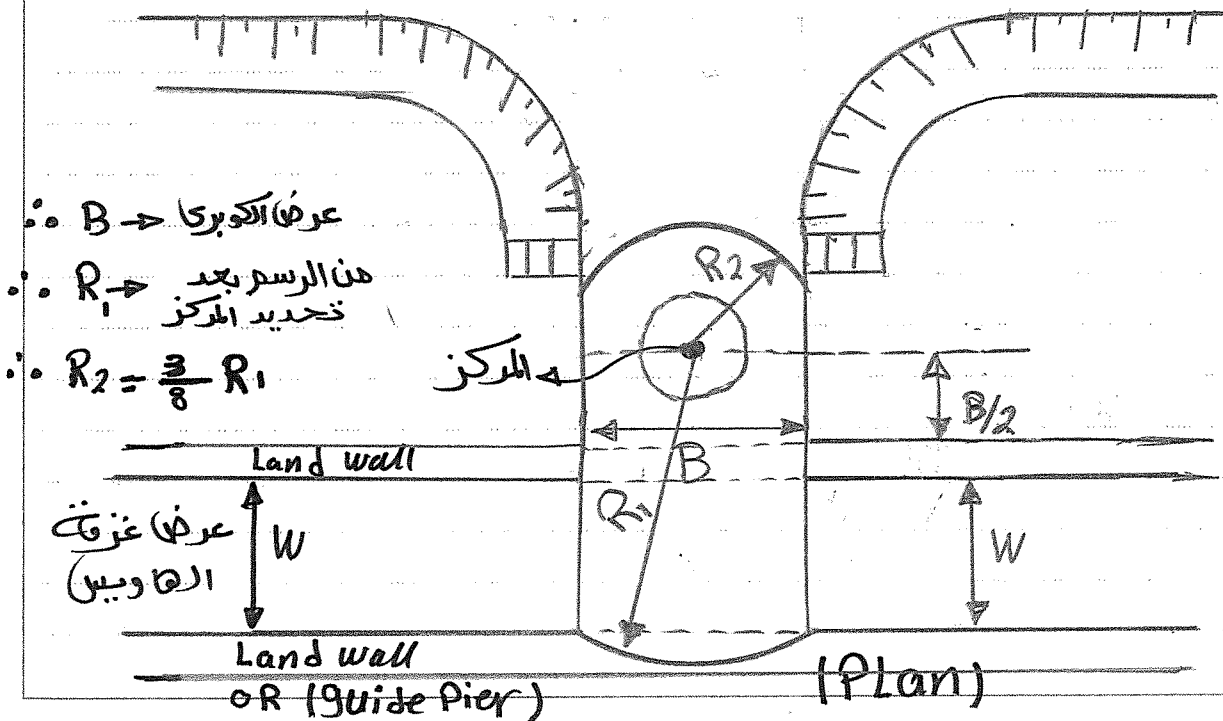 ∴ B → عرض الكوبرى
∴ R₁ → من الرسم بعد
تحديد المركز
∴ R2 = 3/8 R1
R2
المركز
B/2
Land wall
B
R1
عرض غرفة
الهاويس
W
W
Land wall
OR (guide Pier)
(PLan)